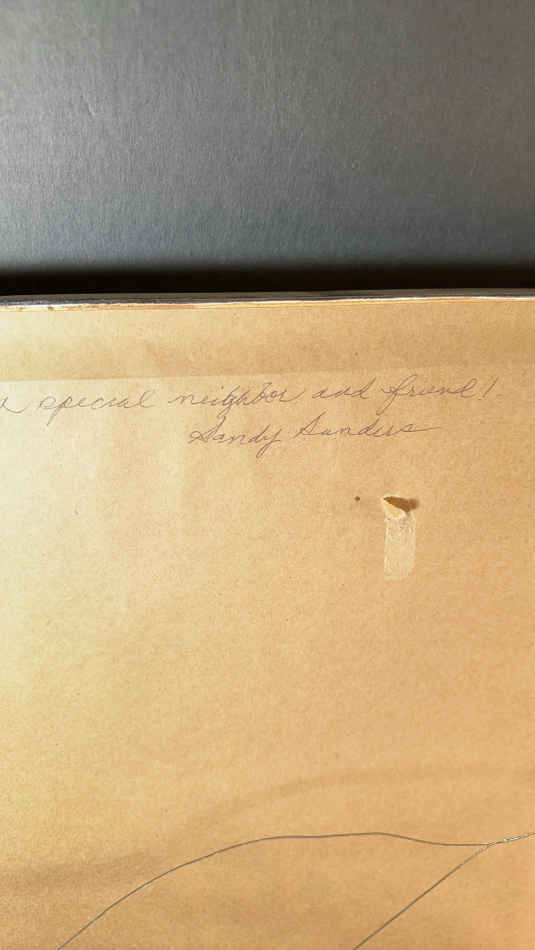 a special neighbor and friend!
Sandy Sanders